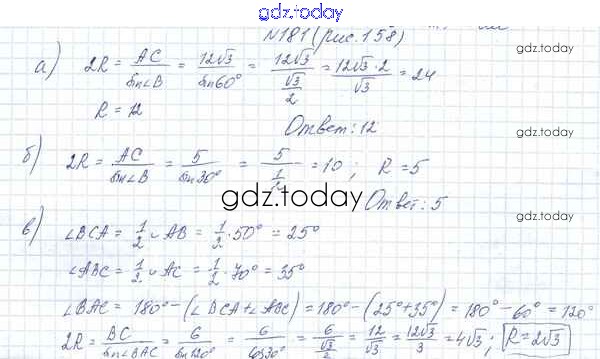 gdz.today
№181 (рис.158)
а) 2R = AC/sin∠B = 12√3/sin60° = 12√3/(√3/2) = 12√3·2/√3 = 24
gdz.today
R = 12
Ответ: 12
б) 2R = AC/sin∠B = 5/sin30° = 5/(1/2) = 10; R = 5
gdz.today
Ответ: 5
в) ∠BCA = 1/2 ∪AB = 1/2·50° = 25°
∠ABC = 1/2 ∪AC = 1/2·70° = 35°
∠BAC = 180° − (∠BCA+∠ABC) = 180° − (25°+35°) = 180° − 60° = 120°
2R = BC/sin∠BAC = 6/sin120° = 6/cos30° = 6/(√3/2) = 12/√3 = 12√3/3 = 4√3; R = 2√3